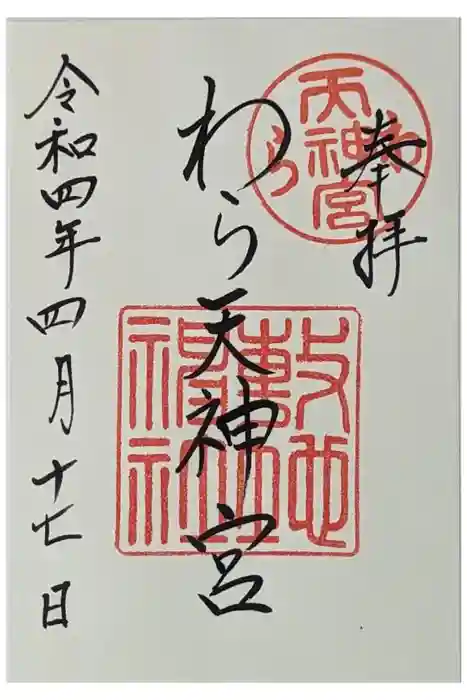 奉拝
わら天神宮
令和四年四月十七日
わら
天神宮
敷地
神社